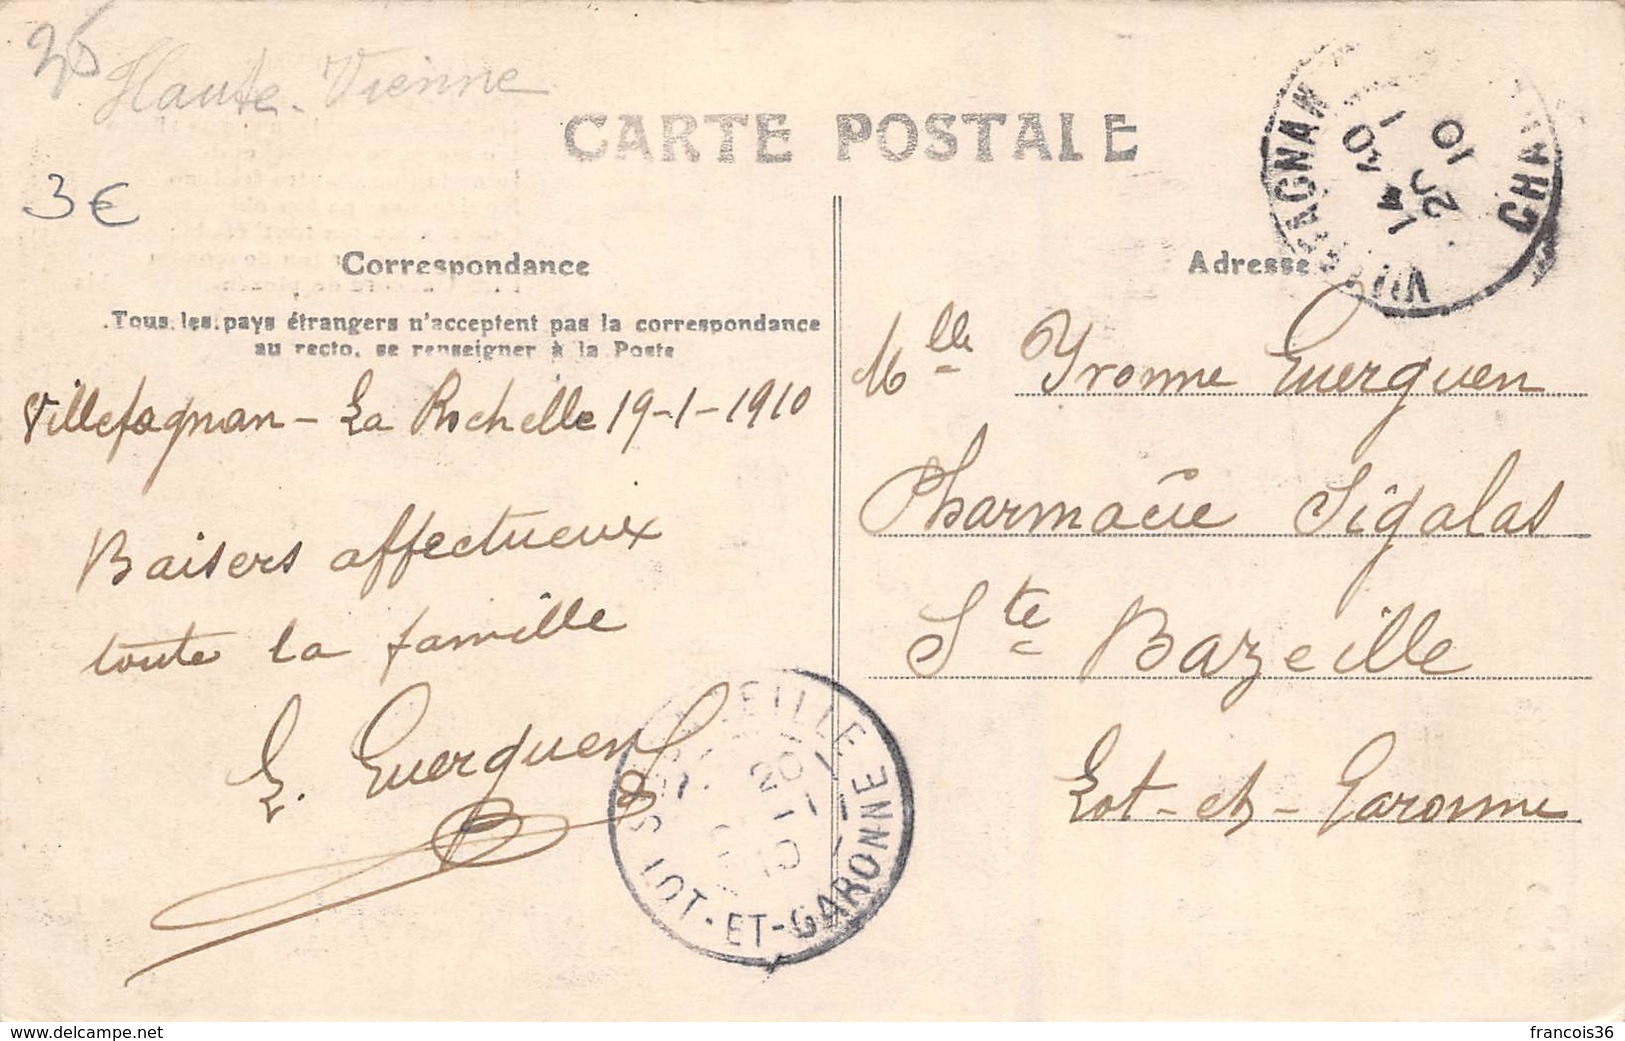 25
Haute-Vienne
3 €
CARTE POSTALE
Correspondance
Tous les pays étrangers n'acceptent pas la correspondance
au recto, se renseigner à la Poste
Villefagnan - La Rochelle 19-1-1910
Baisers affectueux
toute la famille
E. Guerguen
Adresse
Mlle Yvonne Guerguen
Pharmacie Sigalas
Ste Bazeille
Lot-et-Garonne
VILLEFAGNAN
20 1 10
LOT-ET-GARONNE
www.delcampe.net
francois36